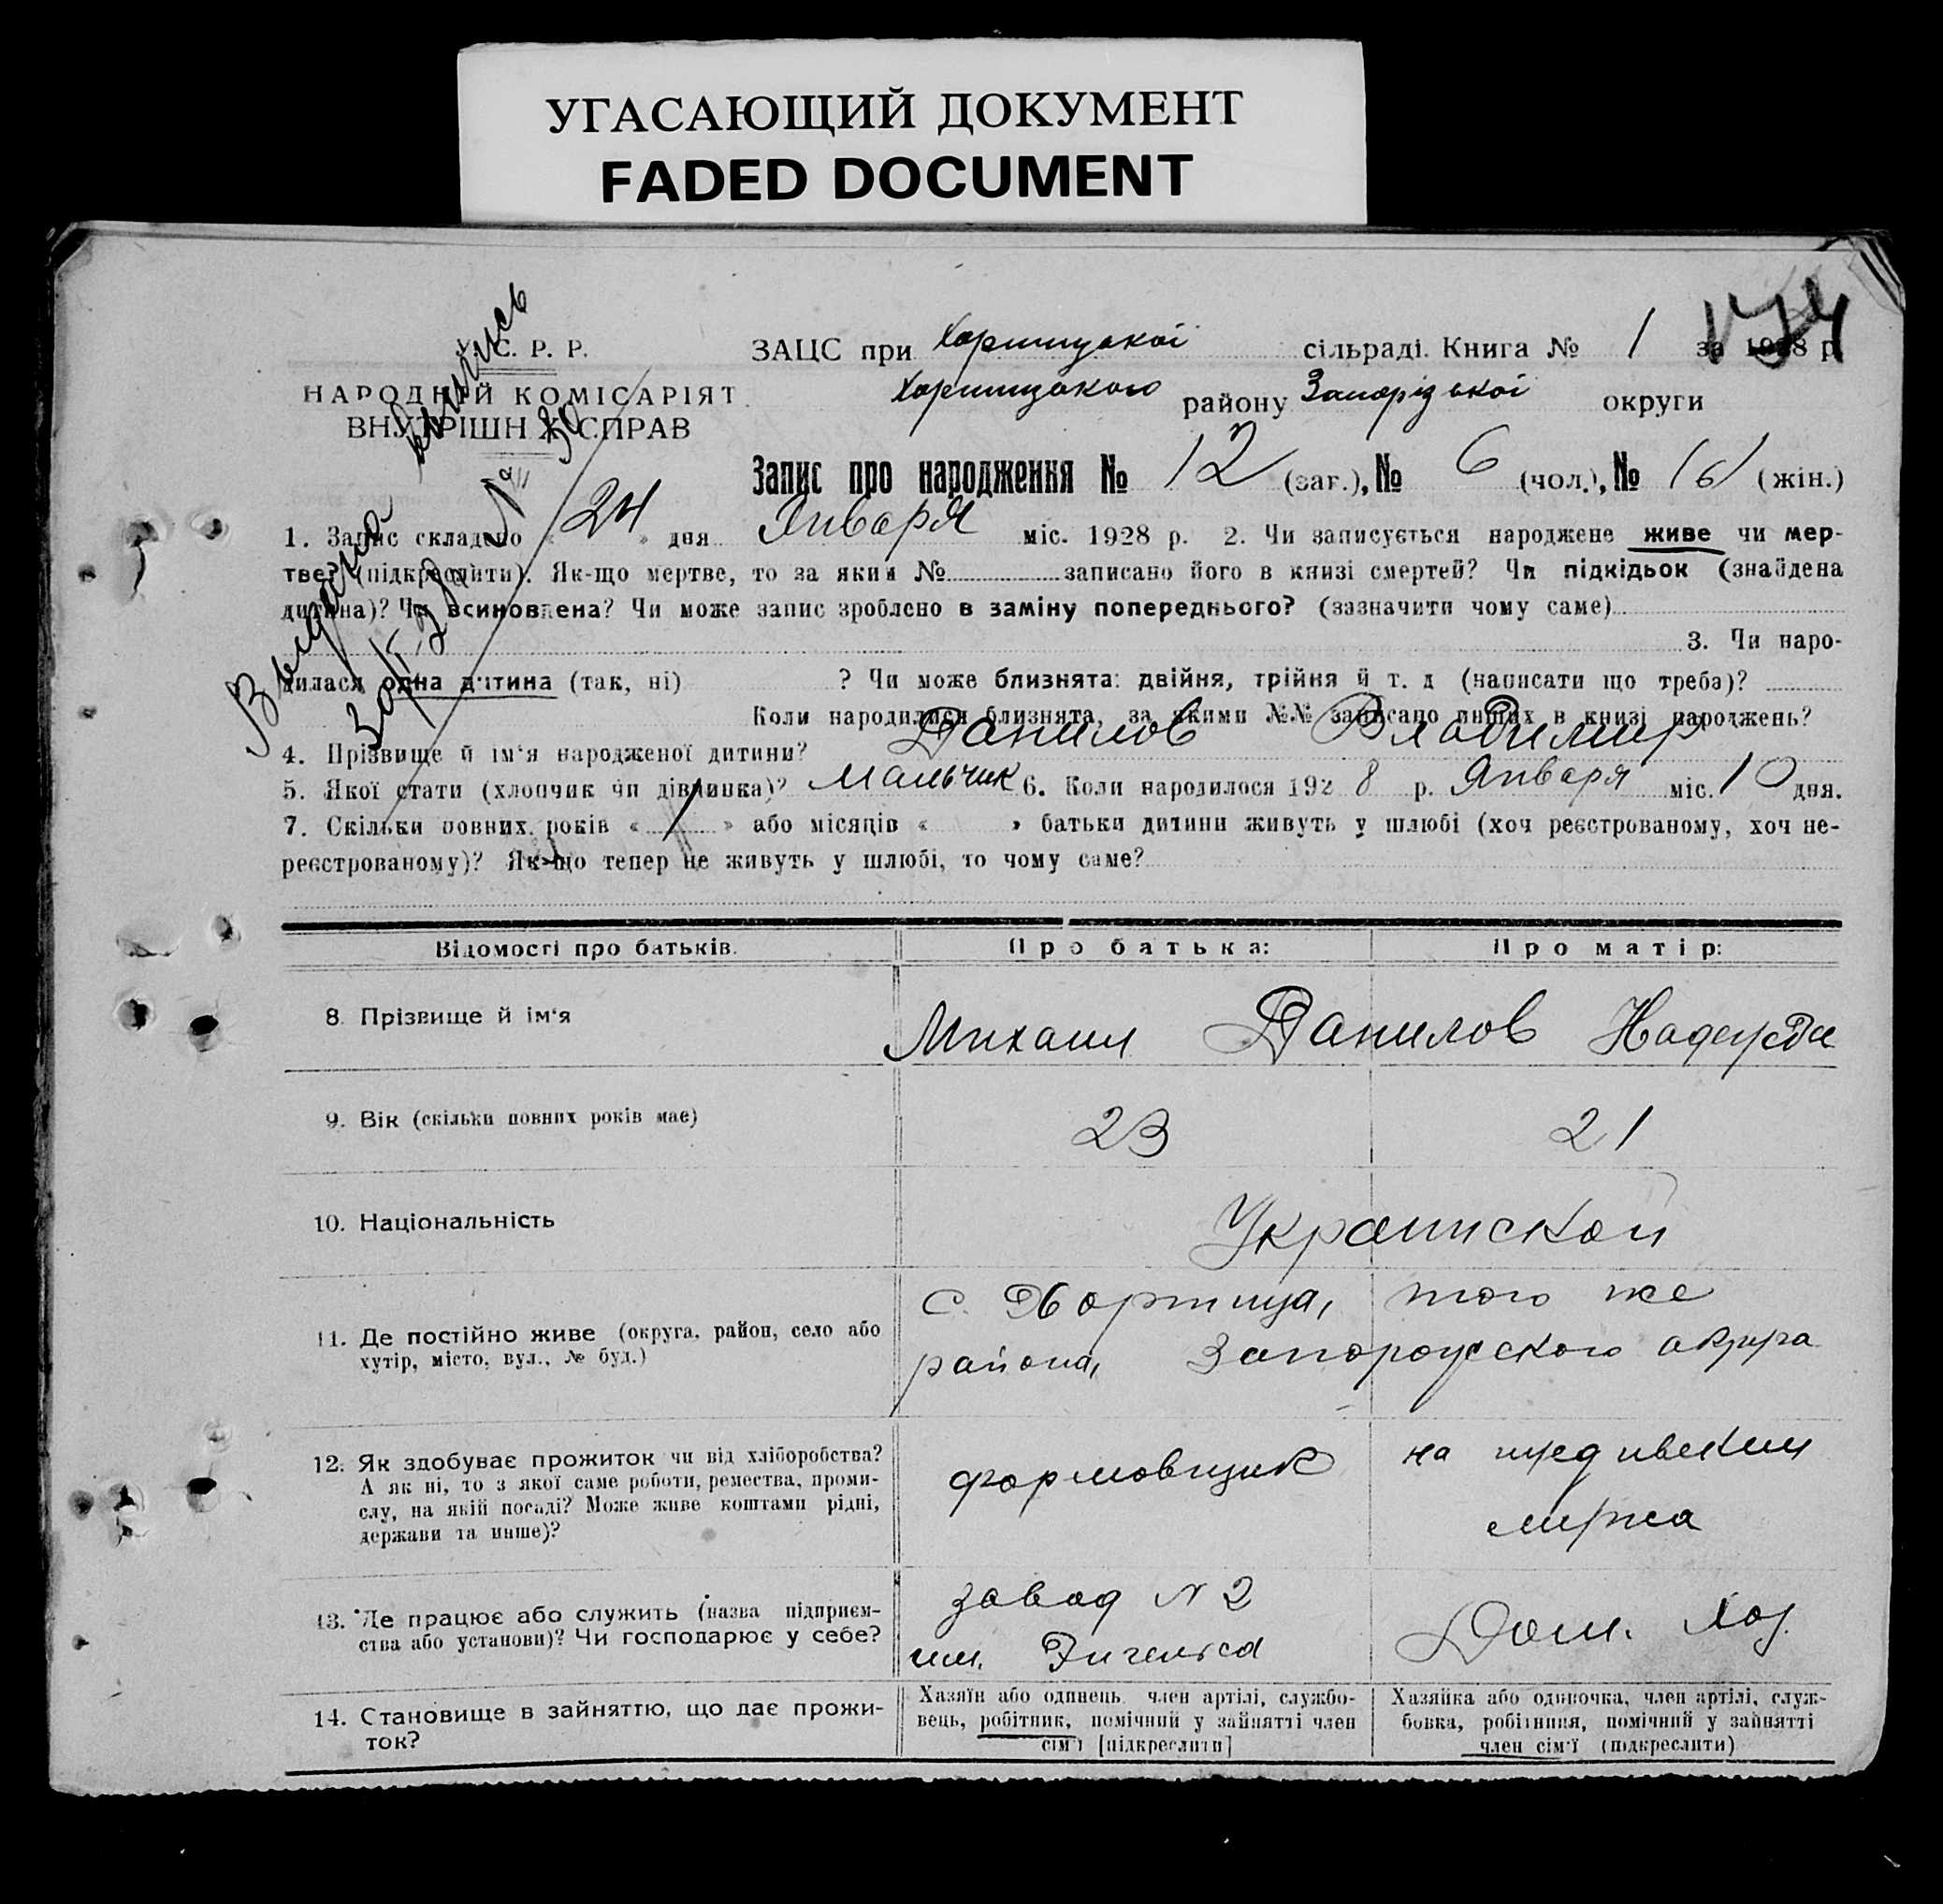 УГАСАЮЩИЙ ДОКУМЕНТ
FADED DOCUMENT
174
С. Р. Р.
НАРОДНІЙ КОМІСАРІЯТ
ВНУТРІШНІХ СПРАВ
ЗАЦС при Хортицької сільраді. Книга № 1 за 1928 р.
Хортицького району Запорізької округи
Запис про народження № 12 (заг.), № 6 (чол.), № (6) (жін.)
Выдана выпись
1. Запис складено « 24 » дня Января міс. 1928 р. 2. Чи записується народжене живе чи мер-
тве? (підкреслити). Як-що мертве, то за яким № записано його в книзі смертей? Чи підкідьок (знайдена
дитина)? Чи всиновлена? Чи може запис зроблено в заміну попереднього? (зазначити чому саме)
3. Чи наро-
дилася одна дитина (так, ні) ? Чи може близнята: двійня, трійня й т. д (написати що треба)?
Коли народилися близнята, за якими №№ записано инших в книзі народжень?
4. Прізвище й ім'я народженої дитини? Данилов Владимир
5. Якої стати (хлопчик чи дівчинка)? Мальчик 6. Коли народилося 1928 р. Января міс. 10 дня.
7. Скільки повних років « 1 » або місяців « » батьки дитини живуть у шлюбі (хоч реєстрованому, хоч не-
реєстрованому)? Як-що тепер не живуть у шлюбі, то чому саме?
Відомості про батьків. Про батька: Про матір:
8. Прізвище й ім'я Михаил Данилов Надежда
9. Вік (скільки повних років має) 23 21
10. Національність Украинской
11. Де постійно живе (округа, район, село або
хутір, місто, вул., № буд.)
с. Хортица, того же
района, Запорожского округа
12. Як здобуває прожиток чи від хліборобства?
А як ні, то з якої саме роботи, ремества, проми-
слу, на якій посаді? Може живе коштами рідні,
держави та инше)?
формовщик
на иждивении
мужа
13. Де працює або служить (назва підприєм-
ства або установи)? Чи господарює у себе?
завод N 2
им. Энгельса
Дом. Хоз.
14. Становище в зайняттю, що дає прожи-
ток?
Хазяїн або одинець член артілі, службо-
вець, робітник, помічний у зайнятті член
сім'ї [підкреслити]
Хазяйка або одиночка, член артілі, служ-
бовка, робітниця, помічний у зайнятті
член сім'ї (підкреслити)